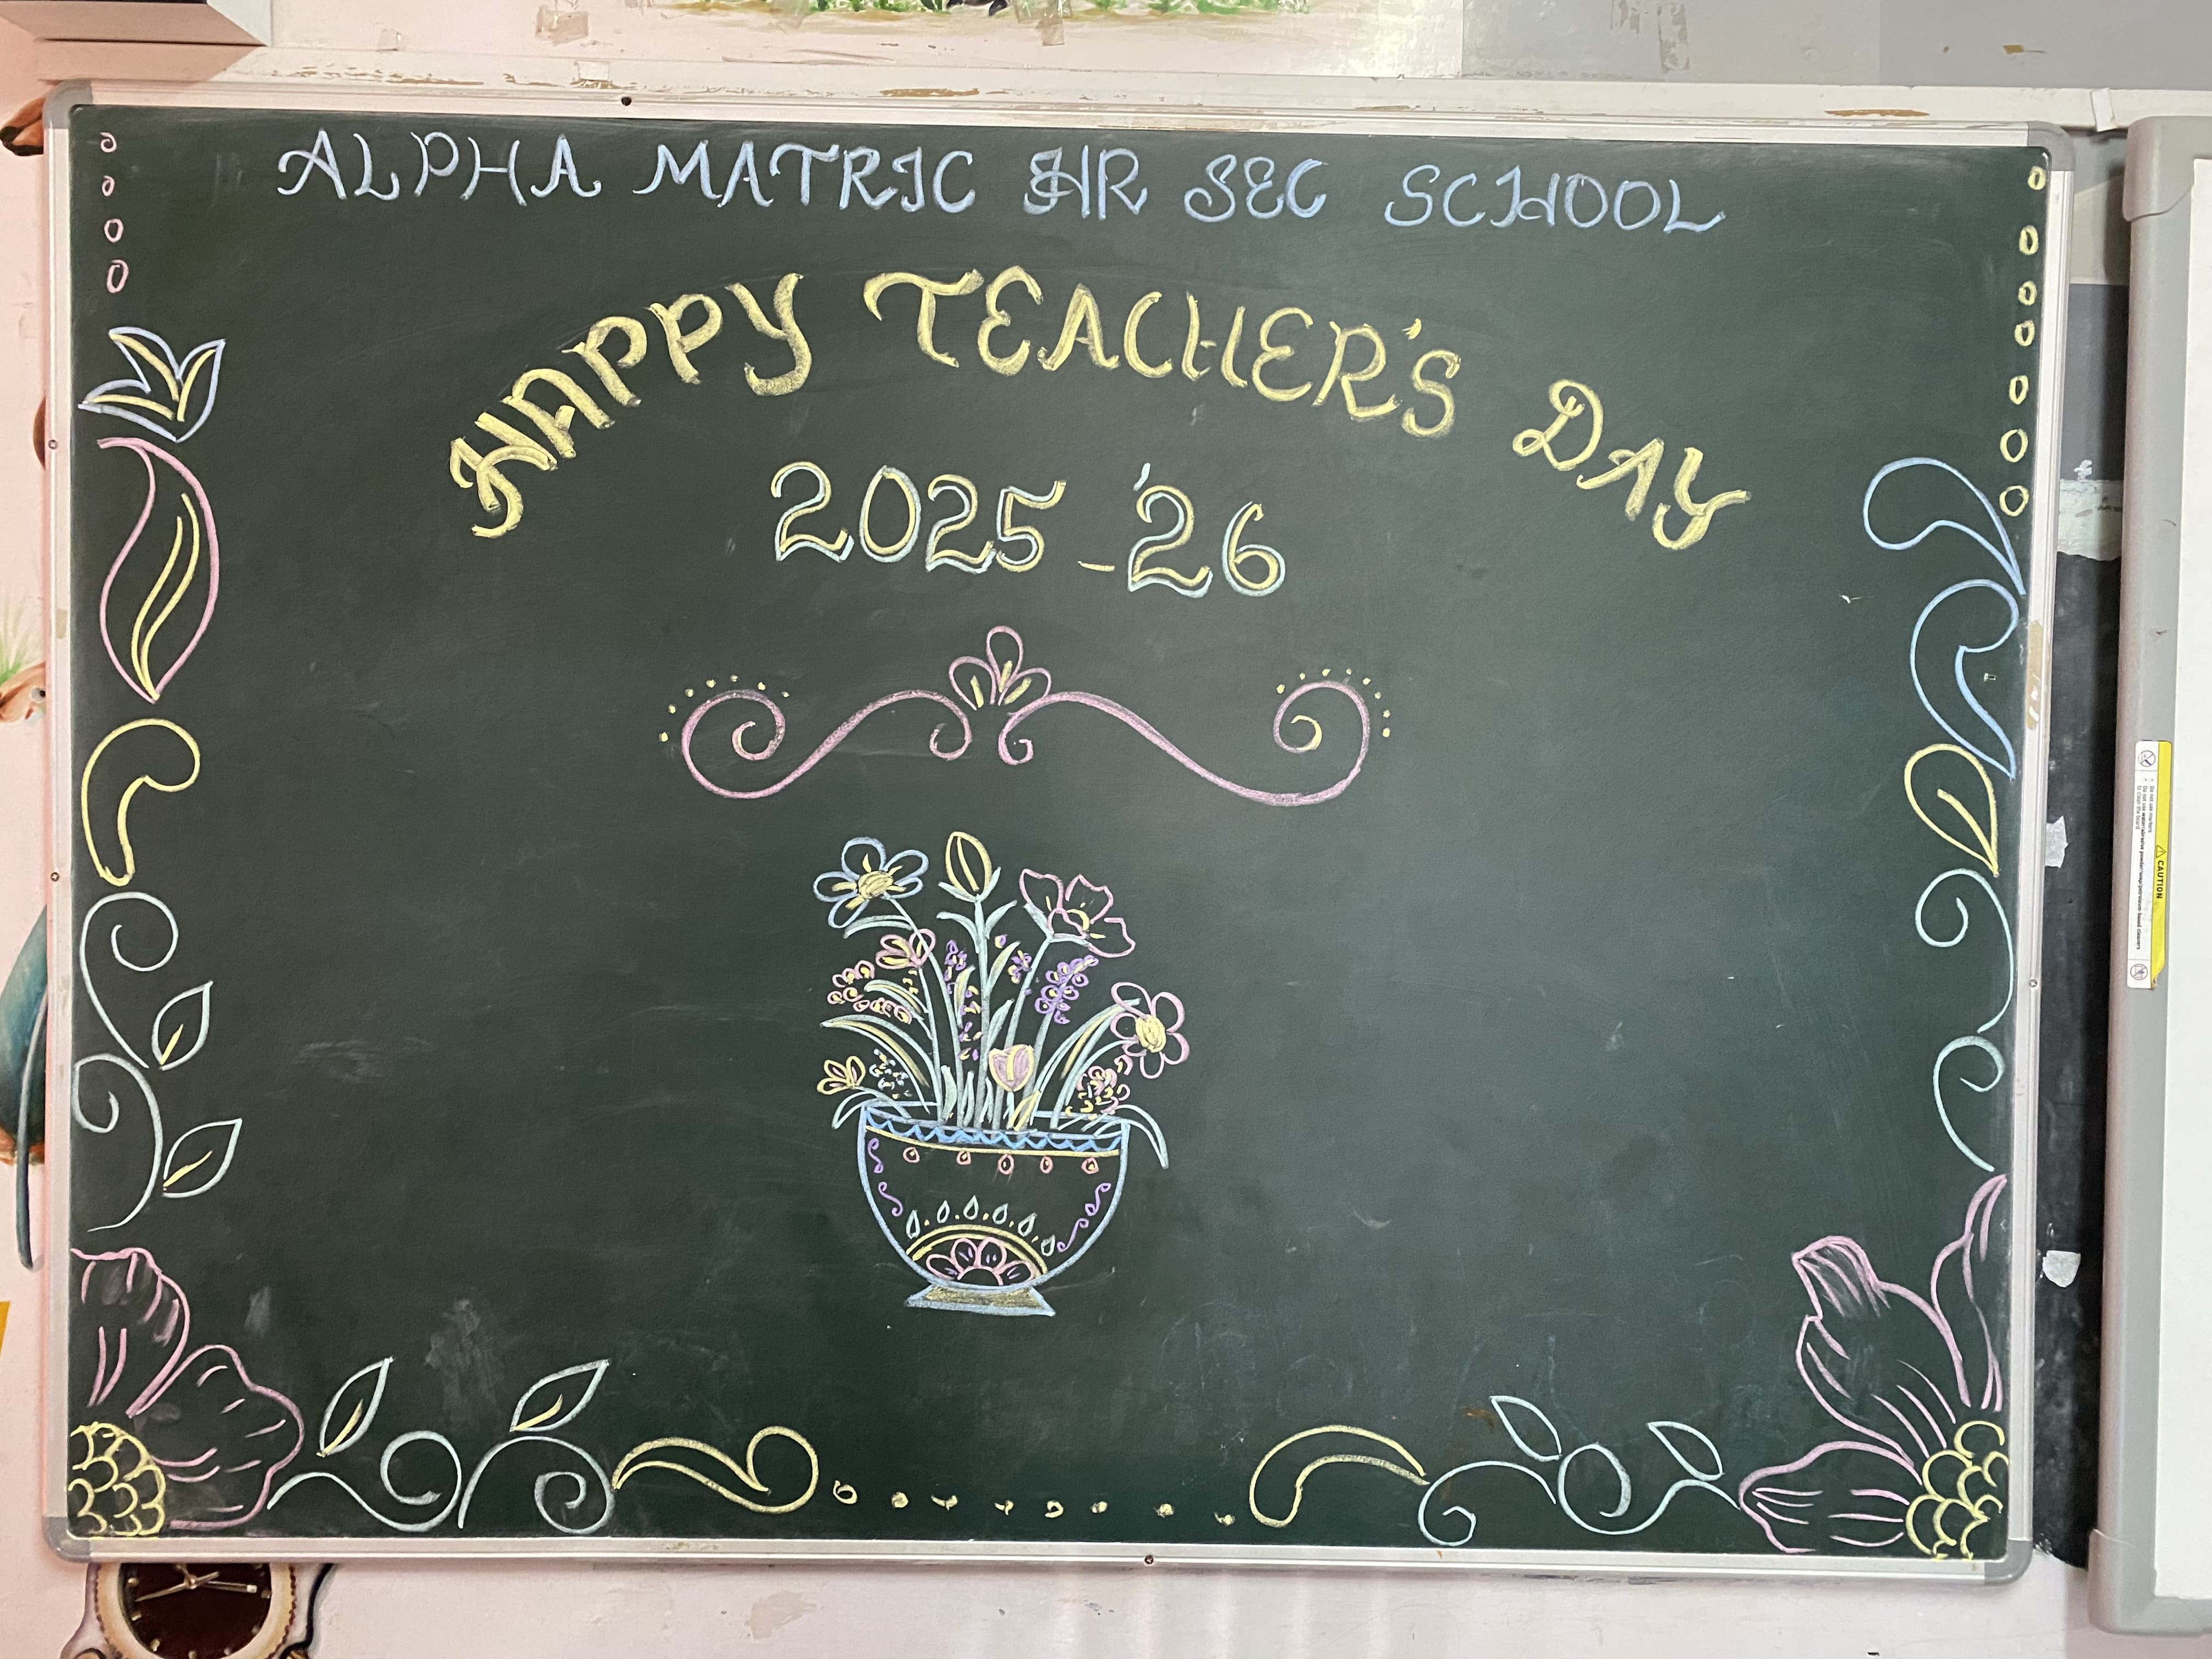 ALPHA MATRIC HR SEC SCHOOL
HAPPY TEACHER'S DAY
2025-'26
CAUTION